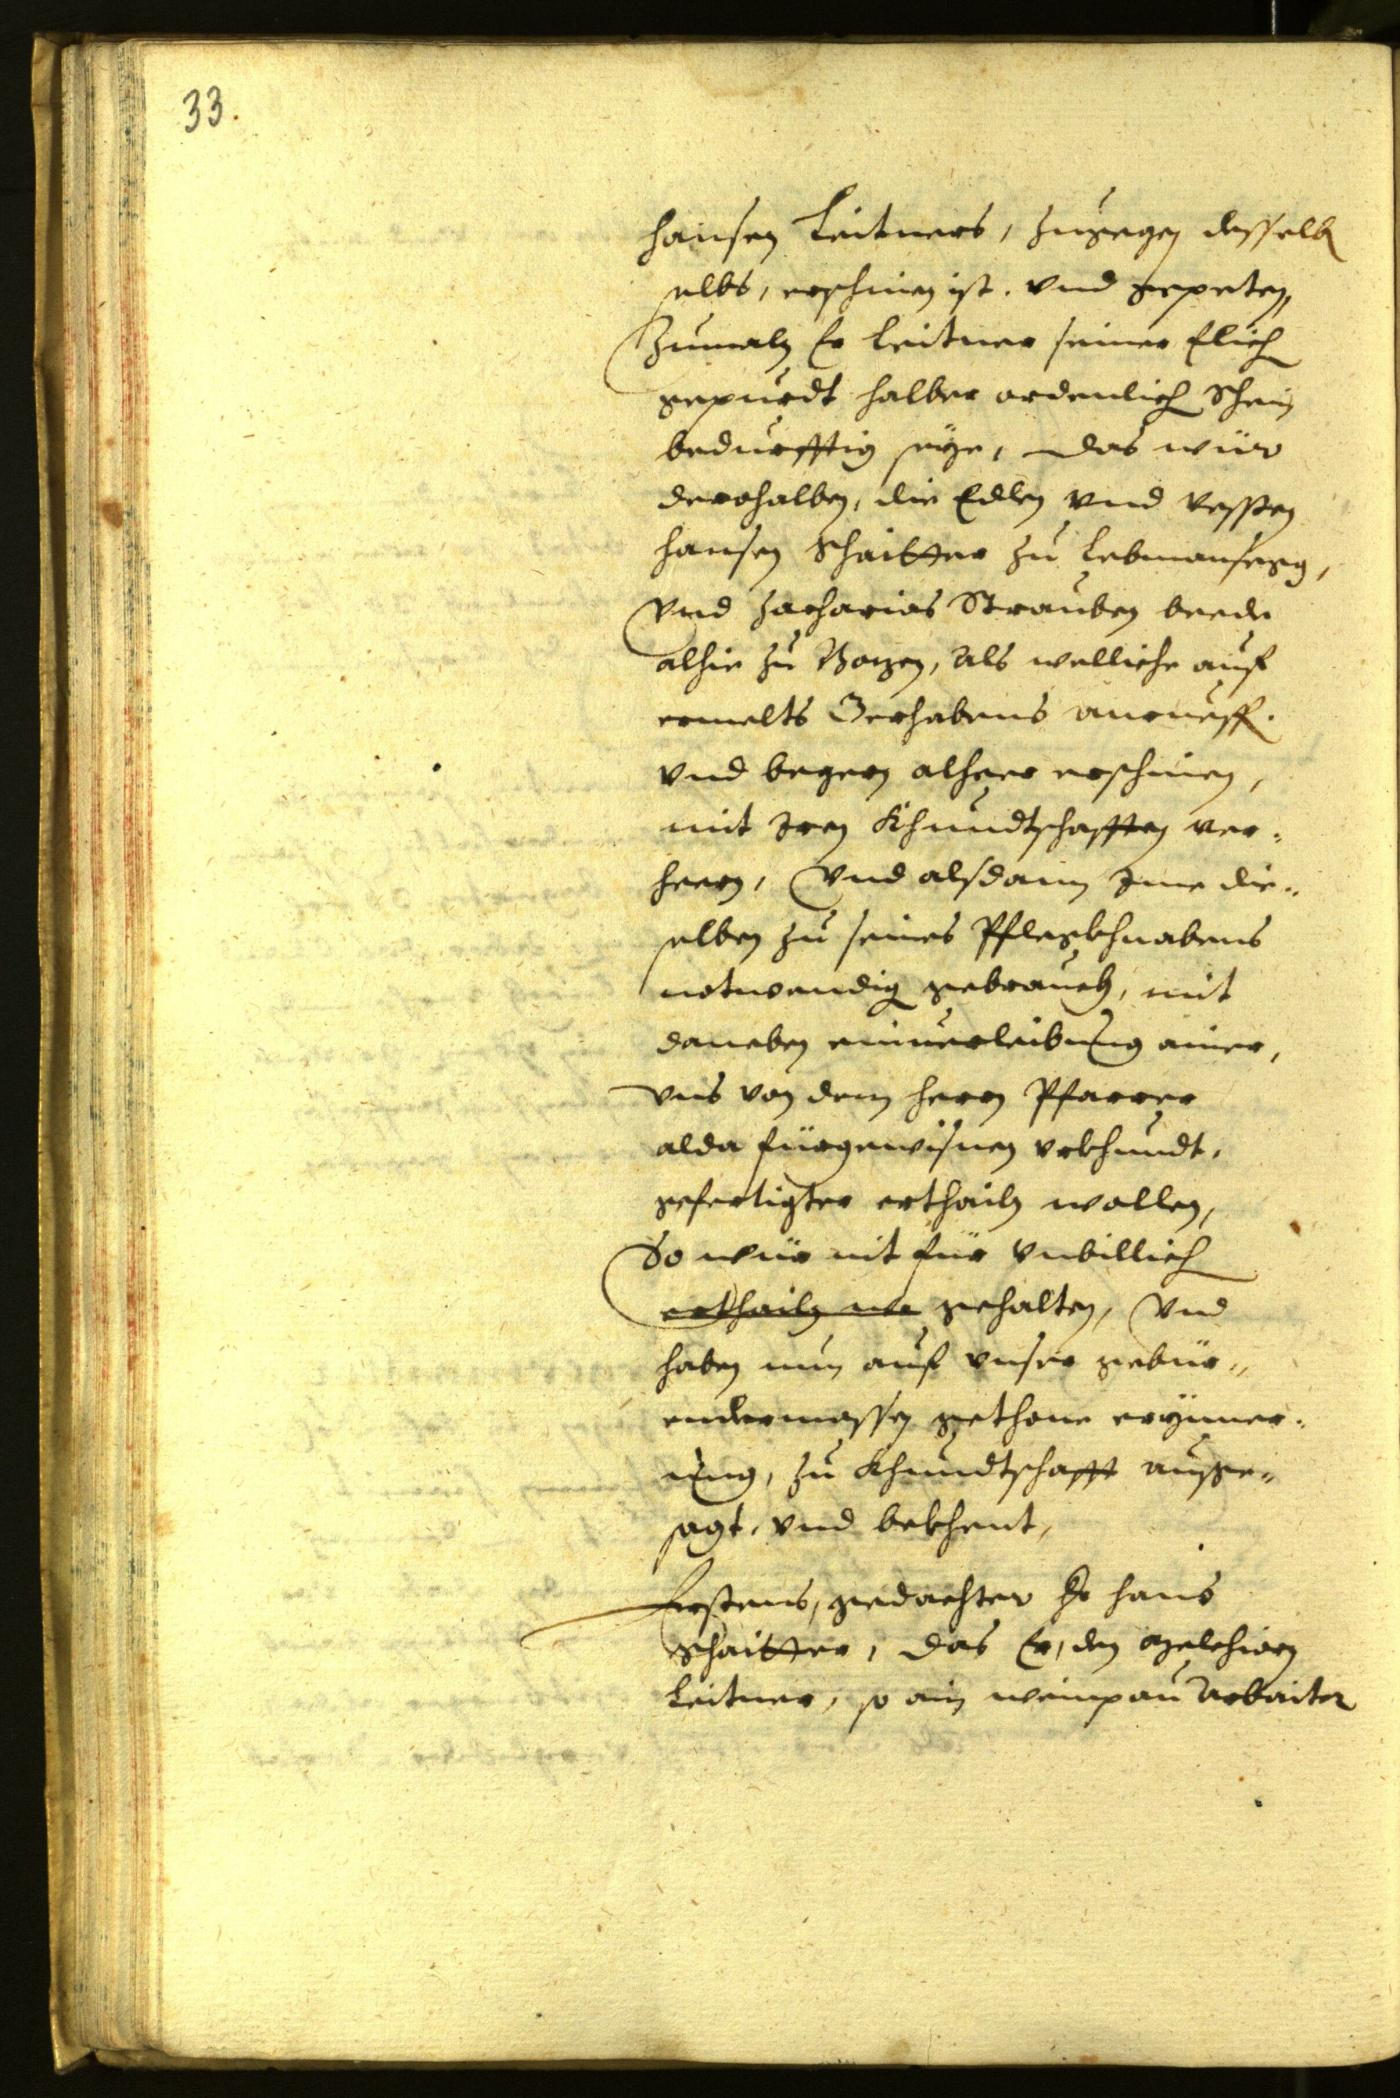 33.
hansen Leitners, zugegen desselb
selbs, erschinen ist. vnd gepeten,
Zumaln Er Leitner seiner Elich
gepurdt halber ordenlich Schein
bedurfftig seÿe, das wür
derrhalben, die Edlen vnd vessten
hansen Schaitter zu Lebmansegg,
vnd Zacharias Strauben beede
alhie zu Bozen, als welliche auf
ermelts Gerhabens anrueff.
vnd begern alheer erschinen,
mit Iren Khundtschafften ver-
hern, Vnd alsdann Ime die-
selben zu seines Pflegkhnabens
notwendig gebrauch, mit
daneben einuerleibung ainer,
vns von dem herrn Pfarrer
alda fürgewisnen vrkhundt,
gefertigter erthailn wollen,
So wür nit für vnbillich
erthailn we gehalten, Vnd
haben nun auf vnser gebür-
endermassen gethone erÿnner-
ung, zu Khundtschafft ausge-
sagt, vnd bekhent,
Erstens, gedachter Hr hans
Schaitter, das Er, den Melchiorn
Leitner, so ain weinpau Arbaiter